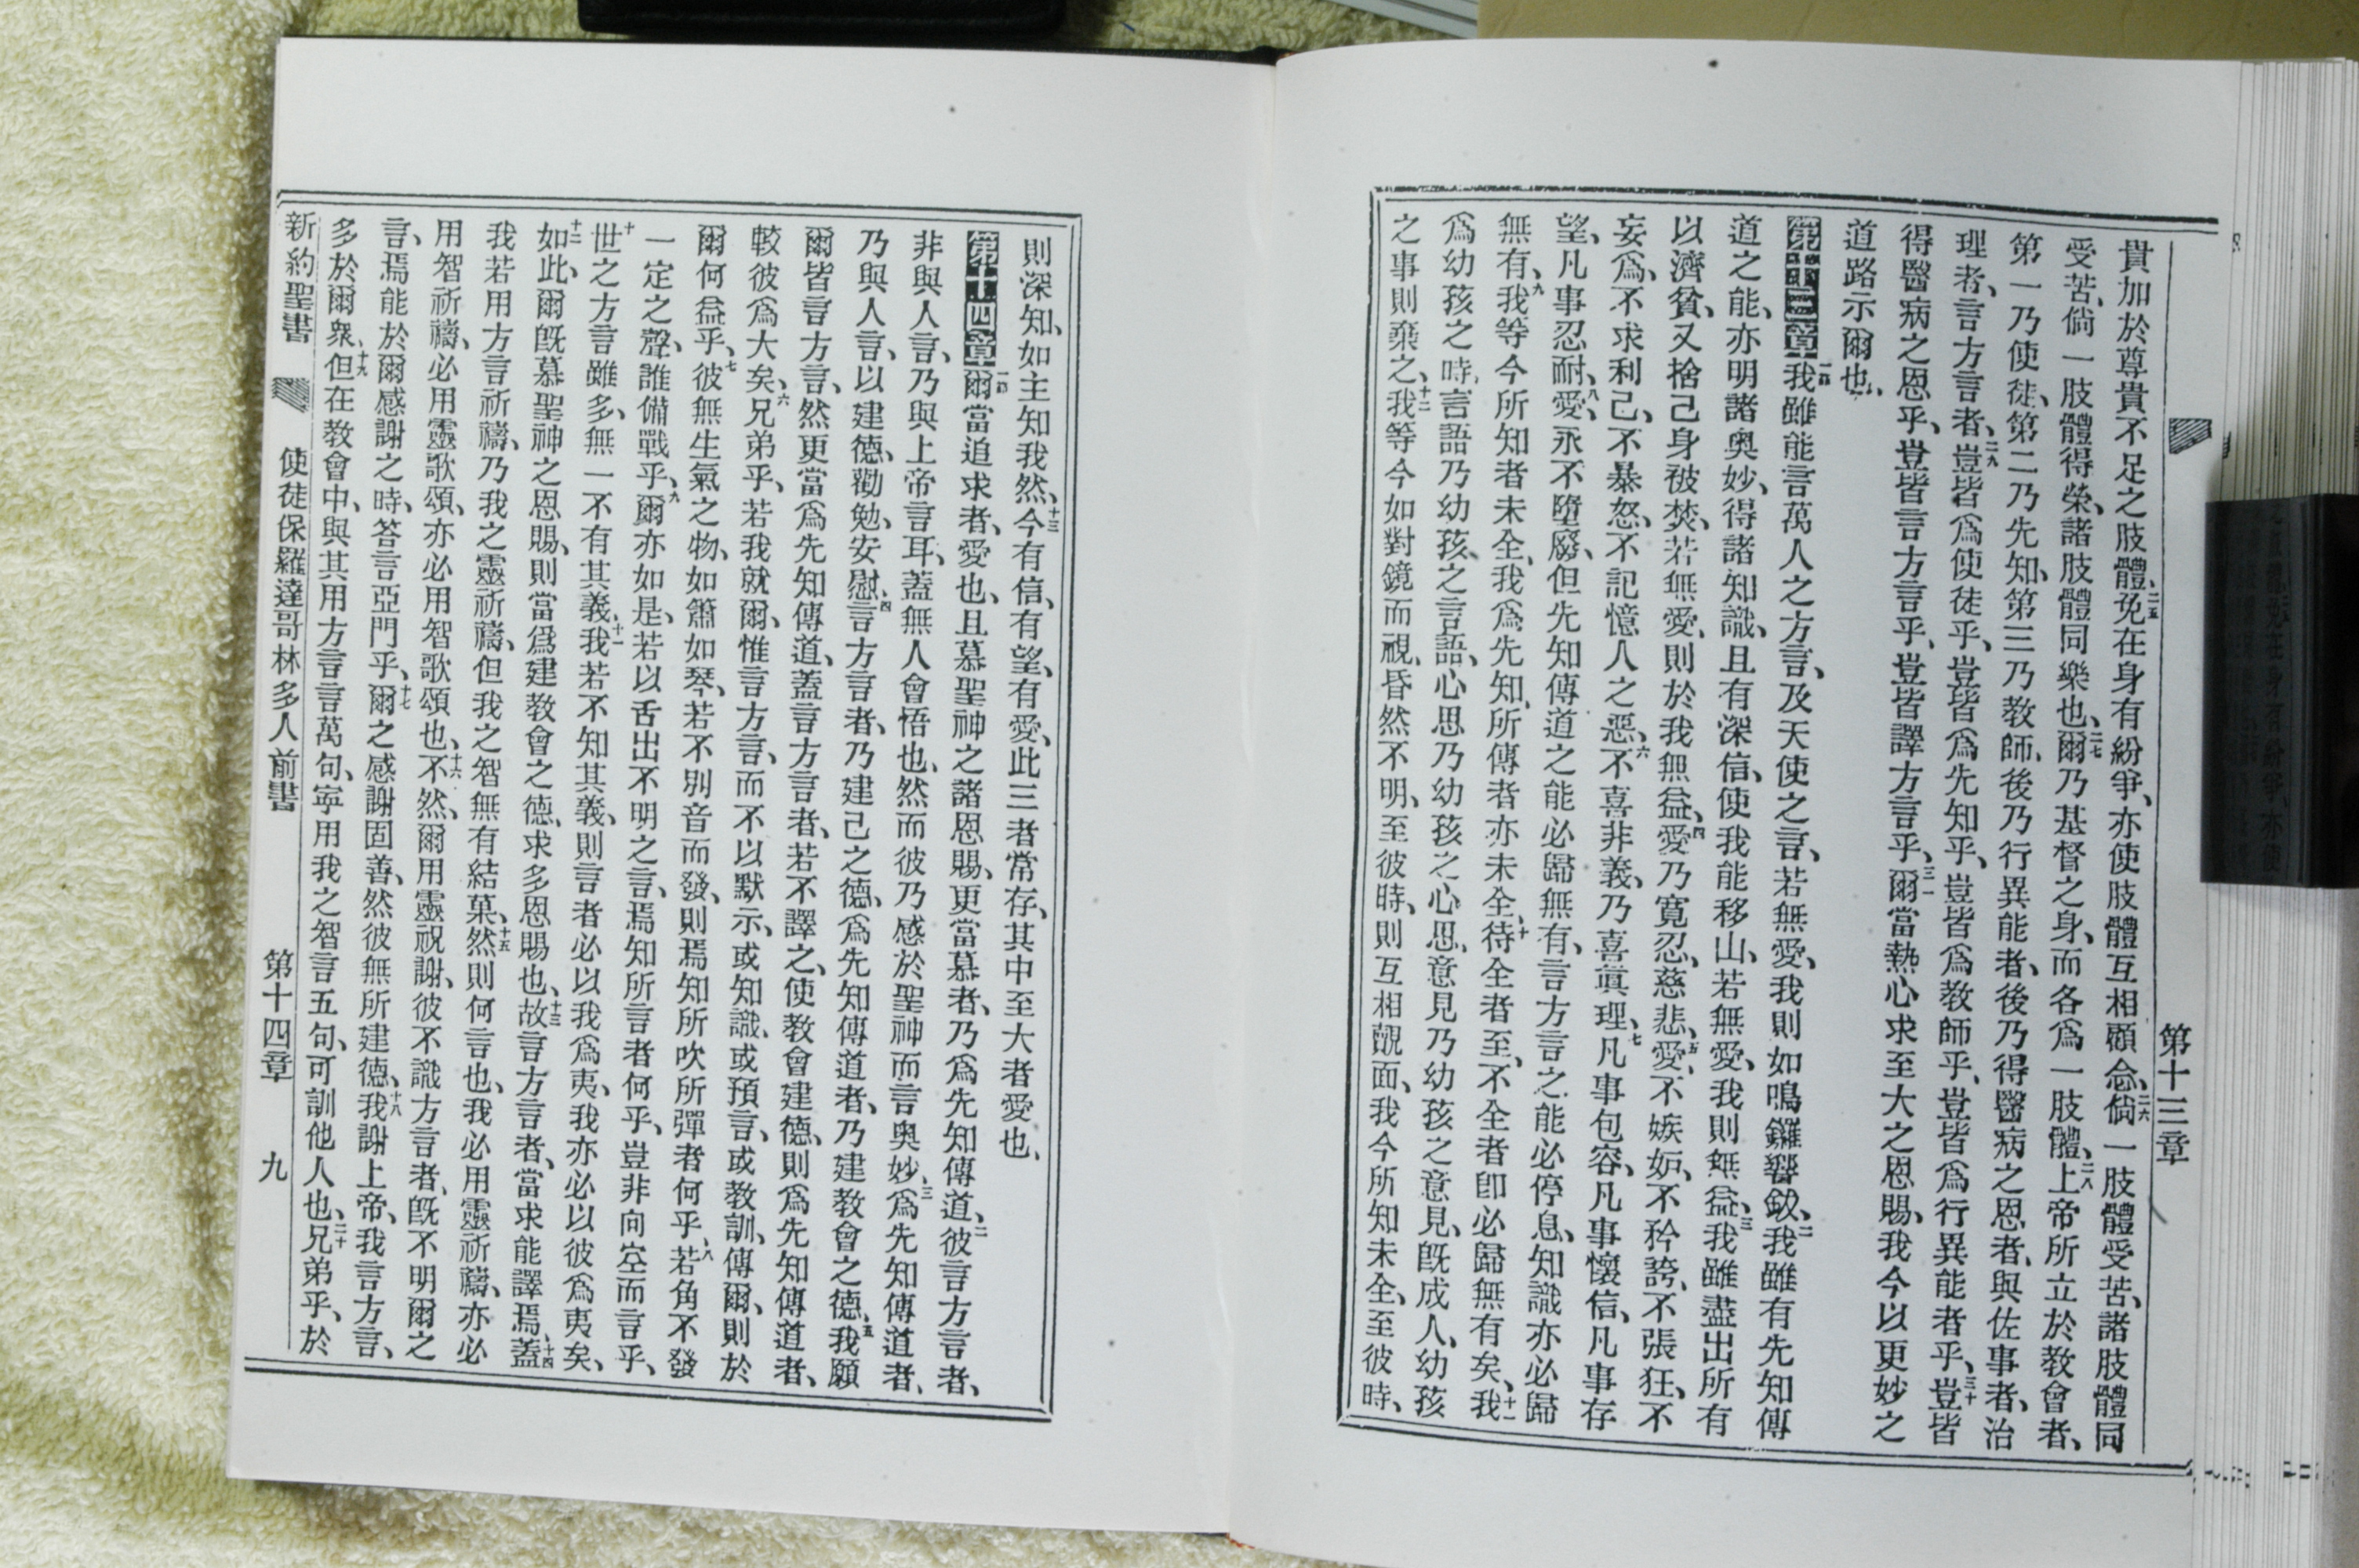 第十三章
貴加於尊貴不足之肢體、二五免在身有紛爭、亦使肢體互相顧念、二六倘一肢體受苦、諸肢體同
受苦、倘一肢體得榮、諸肢體同樂也、二七爾乃基督之身、而各爲一肢體、二八上帝所立於教會者、
第一乃使徒、第二乃先知、第三乃教師、後乃行異能者、後乃得醫病之恩者、與佐事者、治
理者、言方言者、二九豈皆爲使徒乎、豈皆爲先知乎、豈皆爲教師乎、豈皆爲行異能者乎、三十豈皆
得醫病之恩乎、豈皆言方言乎、豈皆譯方言乎、三一爾當熱心求至大之恩賜、我今以更妙之
道路示爾也、
第十三章 一節我雖能言萬人之方言、及天使之言、若無愛、我則如鳴鑼響鈸、二我雖有先知傳
道之能、亦明諸奧妙、得諸知識、且有深信、使我能移山、若無愛、我則無益、三我雖盡出所有
以濟貧、又捨己身被焚、若無愛、則於我無益、四愛乃寬忍、慈悲、愛五不嫉妬、不矜誇、不張狂、不
妄爲、不求利己、不暴怒、不記憶人之惡、六不喜非義、乃喜眞理、七凡事包容、凡事懷信、凡事存
望、凡事忍耐、八愛永不墮廢、但先知傳道之能必歸無有、言方言之能必停息、知識亦必歸
無有、九我等今所知者未全、我爲先知、所傳者亦未全、十待全者至、不全者卽必歸無有矣、十一我
爲幼孩之時、言語乃幼孩之言語、心思乃幼孩之心思、意見乃幼孩之意見、旣成人、幼孩
之事則棄之、十二我等今如對鏡而視、昏然不明、至彼時、則互相覿面、我今所知未全、至彼時、
則深知、如主知我然、十三今有信、有望、有愛、此三者常存、其中至大者愛也、
第十四章 一節爾當追求者、愛也、且慕聖神之諸恩賜、更當慕者、乃爲先知傳道、二彼言方言者、
非與人言、乃與上帝言耳、蓋無人會悟也、然而彼乃感於聖神而言奧妙、三爲先知傳道者、
乃與人言、以建德、勸勉、安慰、四言方言者、乃建己之德、爲先知傳道者、乃建教會之德、五我願
爾皆言方言、然更當爲先知傳道、蓋言方言者、若不譯之、使教會建德、則爲先知傳道者、
較彼爲大矣、六兄弟乎、若我就爾、惟言方言、而不以默示、或知識、或預言、或教訓、傳爾、則於
爾何益乎、七彼無生氣之物、如簫如琴、若不別音而發、則焉知所吹所彈者何乎、八若角不發
一定之聲、誰備戰乎、九爾亦如是、若以舌出不明之言、焉知所言者何乎、豈非向空而言乎、
十世之方言雖多、無一不有其義、十一我若不知其義、則言者必以我爲夷、我亦必以彼爲夷矣、
十二如此、爾旣慕聖神之恩賜、則當爲建教會之德、求多恩賜也、十三故言方言者、當求能譯焉、十四蓋
我若用方言祈禱、乃我之靈祈禱、但我之智無有結菓、十五然則何言也、我必用靈祈禱、亦必
用智祈禱、必用靈歌頌、亦必用智歌頌也、十六不然、爾用靈祝謝、彼不識方言者、旣不明爾之
言、焉能於爾感謝之時、答言亞門乎、十七爾之感謝固善、然彼無所建德、十八我謝上帝、我言方言、
多於爾衆、十九但在教會中、與其用方言言萬句、寧用我之智言五句、可訓他人也、二十兄弟乎、於
新約聖書 使徒保羅達哥林多人前書 第十四章 九